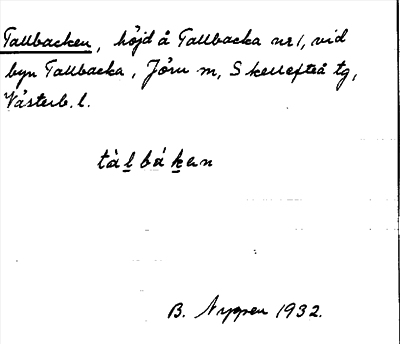 Tallbacken, höjd å Tallbacka nr 1, vid
byn Tallbacka, Jörn m, Skellefteå tg,
Västerb. l.
tàl̲ bákֽen
B. Nyppen 1932.